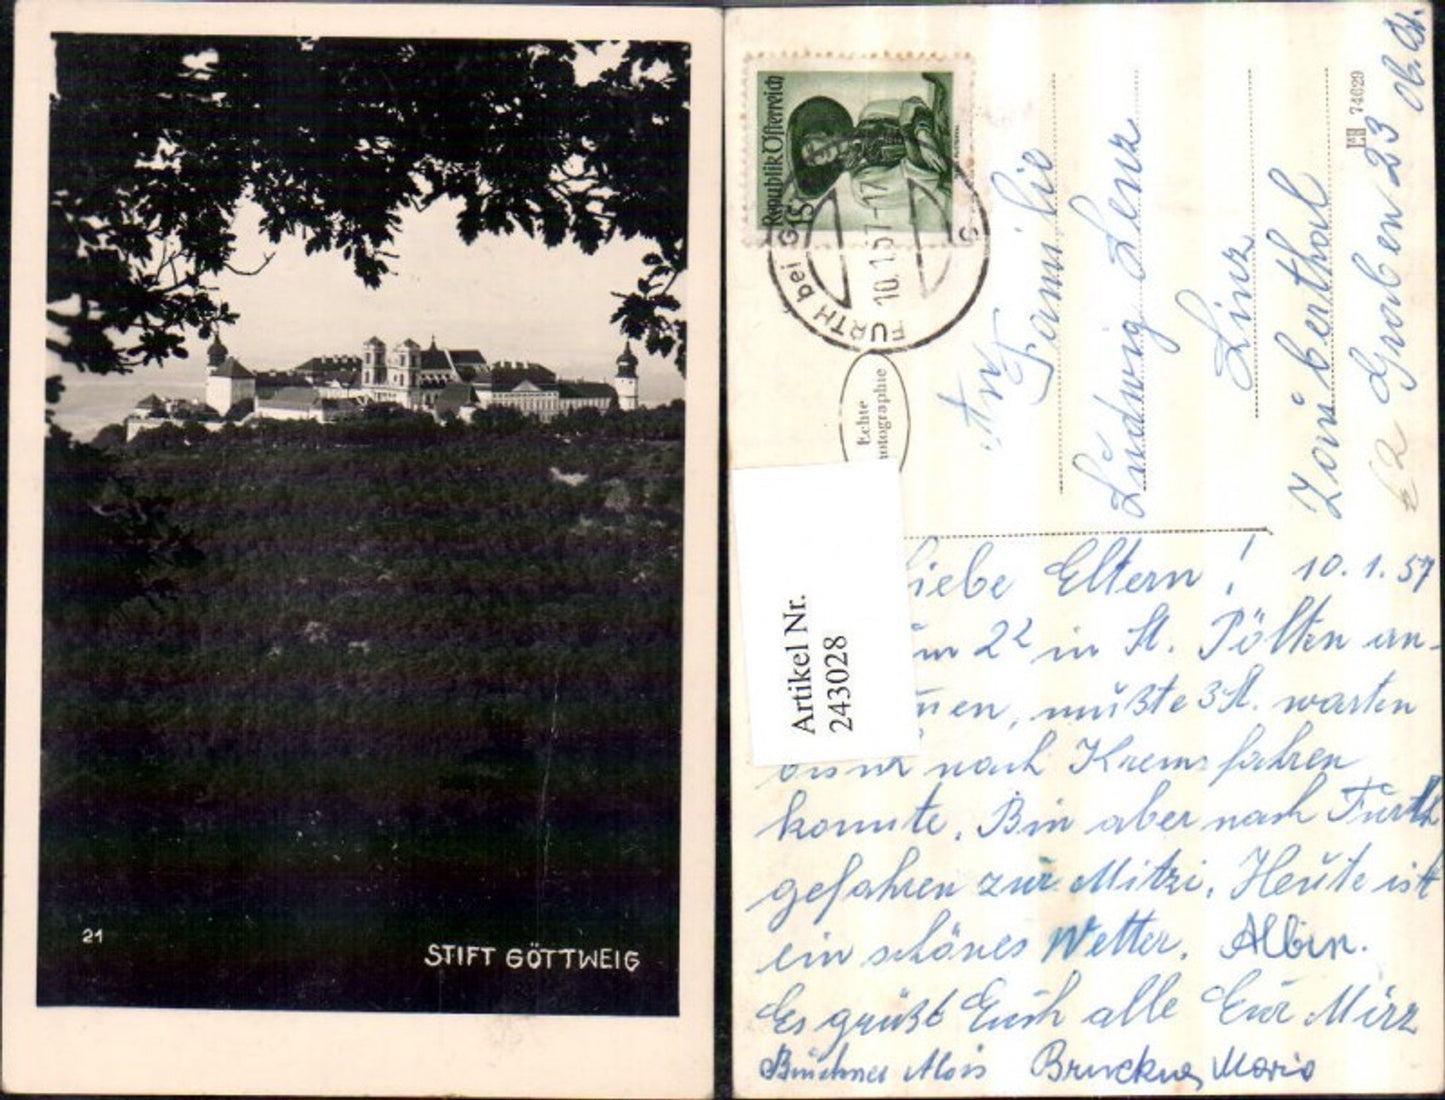 21
STIFT GÖTTWEIG
Republik Österreich
FURTH bei G
10.1.57-17
Echte
Photographie
Artikel Nr.
243028
EH 74629
Familie
Ludwig Lenz
Linz
Zaubertal
Graben 23
€2
Liebe Eltern! 10.1.57
um 2² in St. Pölten an-
mußte 3 St. warten
nach Krems fahren
konnte. Bin aber nach Furth
gefahren zur Mitzi. Heute ist
ein schönes Wetter. Albin.
Es grüßt Euch alle Eur Mizz
Alois Bruckner Maria